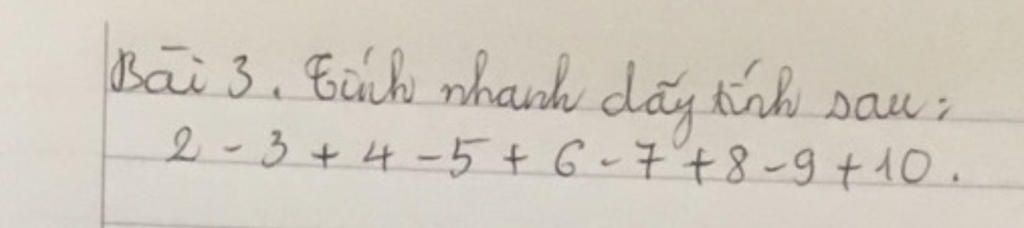 Bài 3. Tính nhanh dãy tính sau:
2 - 3 + 4 - 5 + 6 - 7 + 8 - 9 + 10.